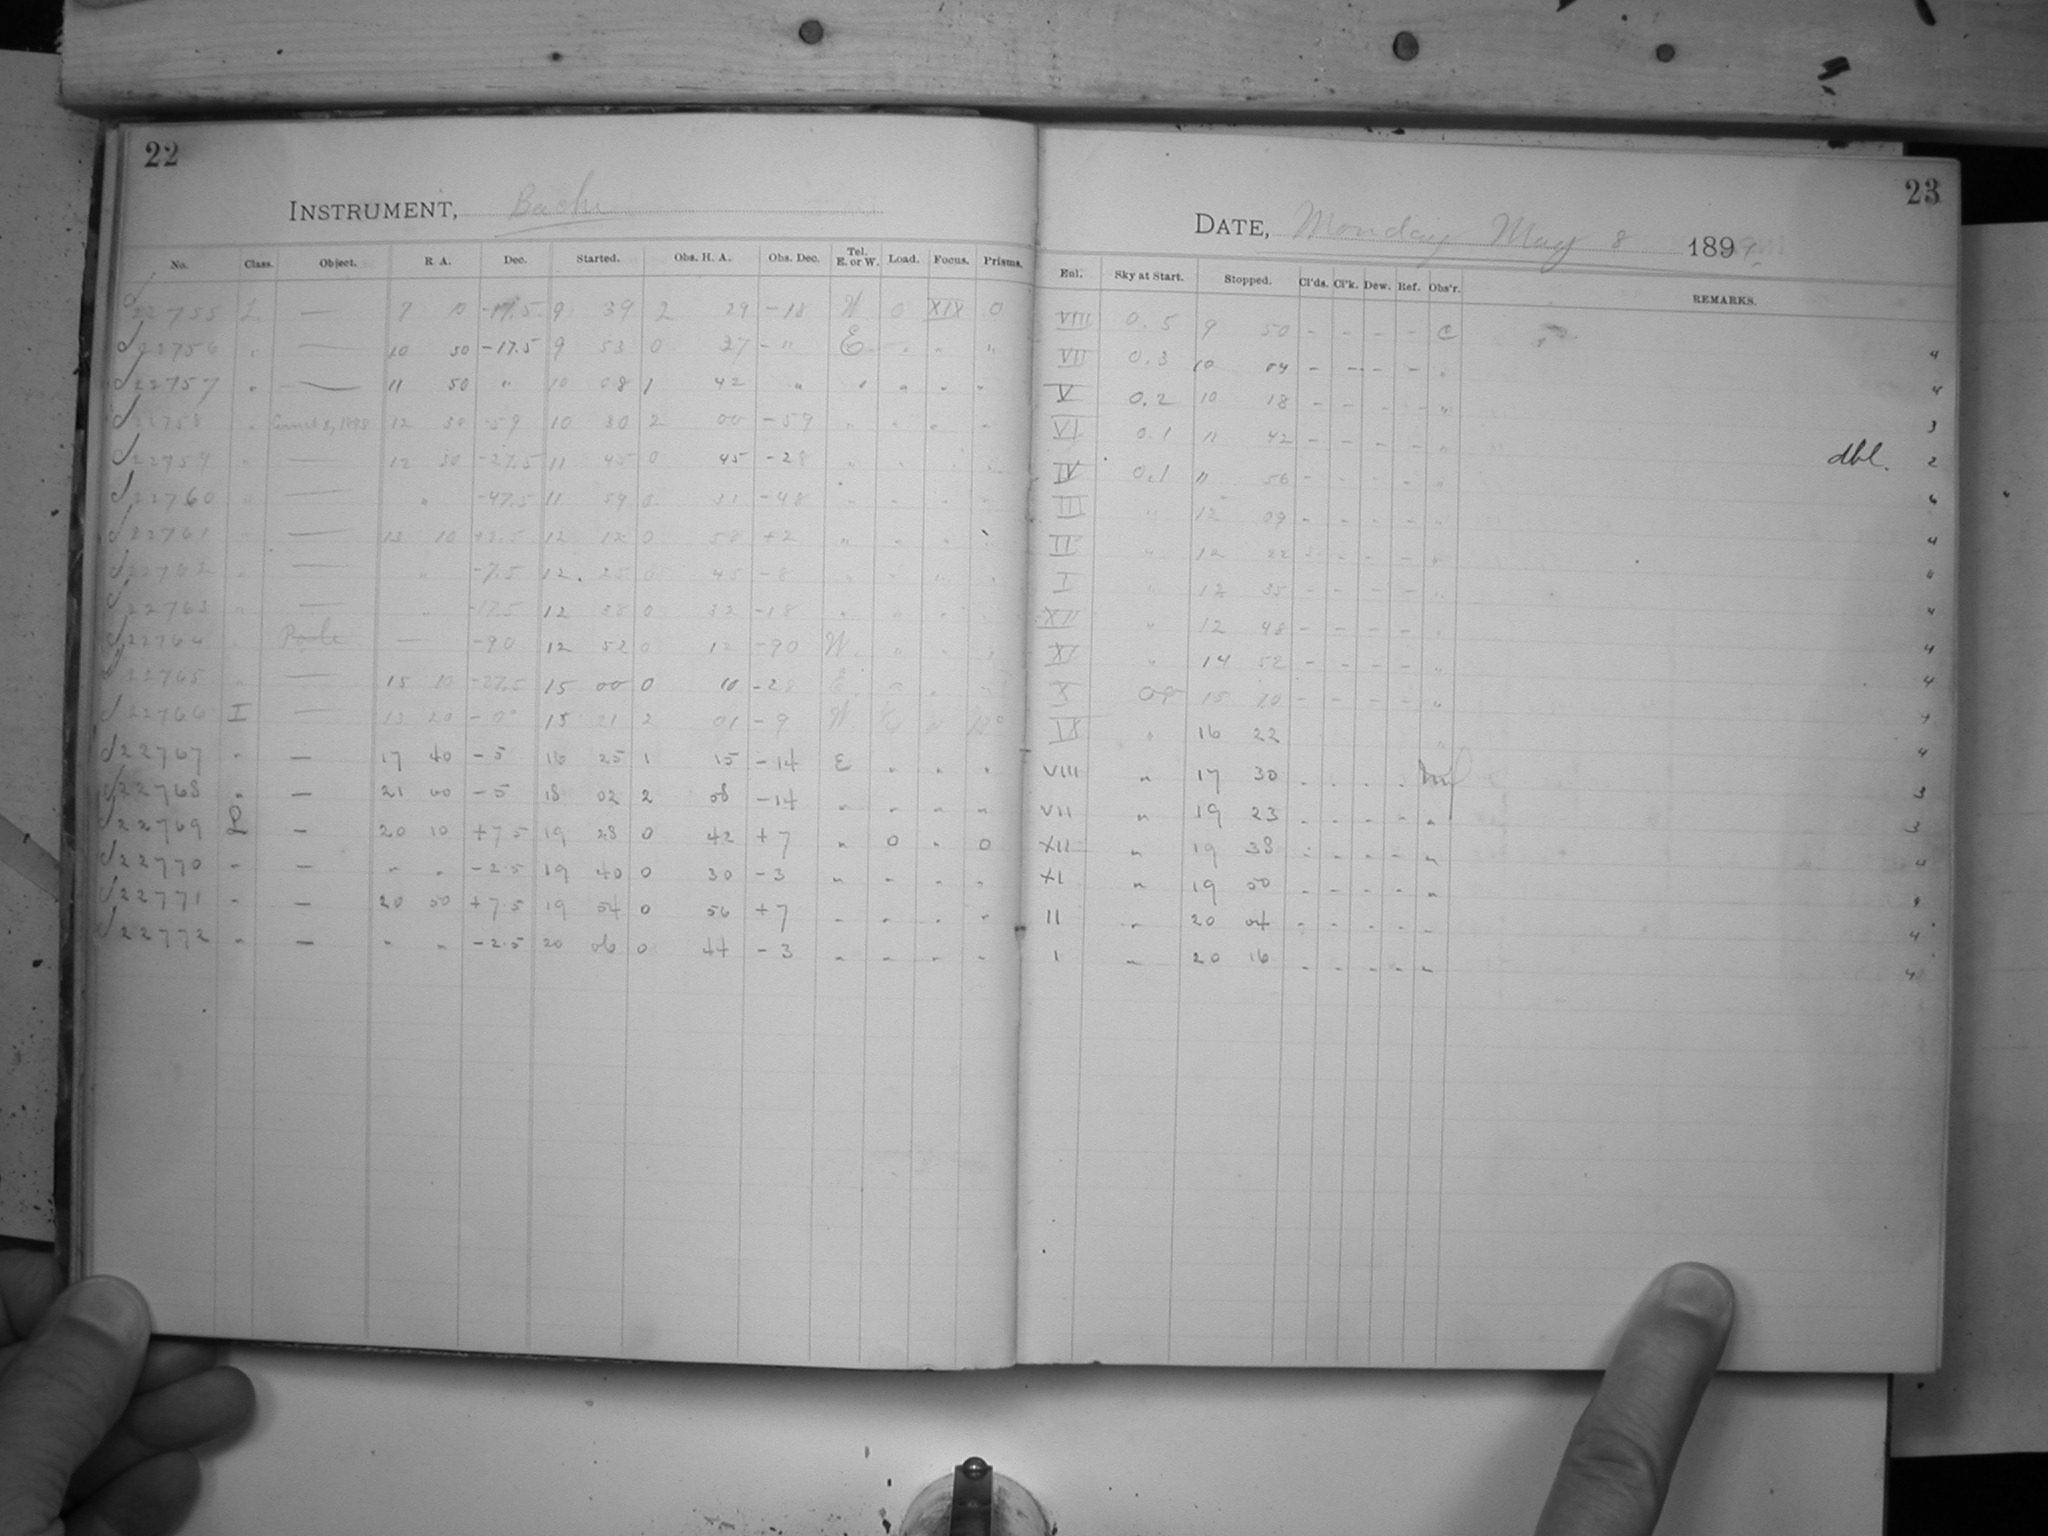 22
INSTRUMENT, Bache
No. Class. Object. R. A. Dec. Started. Obs. H. A. Obs. Dec. Tel. E. or W. Load. Focus. Prisms.
22755 L — 9 10 -17.5 9 39 2 29 -18 W 0 XIX 0
22756 " — 10 50 -17.5 9 53 0 37 - " E " " "
22757 " — 11 50 " 10 08 1 42 " " " " "
22758 " 12 30 -59 10 30 2 00 -59 " " " "
22759 " — 12 30 -27.5 11 45 0 45 -28 " " " "
22760 " — " -47.5 11 59 0 31 -48 " " " "
22761 " — 13 10 +2.5 12 12 0 58 +2 " " " "
22762 " — " -7.5 12 25 0 45 -8 " " " "
22763 " — " -17.5 12 38 0 32 -18 " " " "
22764 " Pole — -90 12 52 0 12 -90 W " " "
22765 " — 15 10 -27.5 15 00 0 10 -28 E " " "
22766 I — 13 20 15 21 2 01 -9 W
22767 " — 17 40 -5 16 25 1 15 -14 E " " "
22768 " — 21 00 -5 18 02 2 08 -14 " " " "
22769 L — 20 10 +7.5 19 28 0 42 +7 " 0 " 0
22770 " — " " -2.5 19 40 0 30 -3 " " " "
22771 " — 20 50 +7.5 19 54 0 56 +7 " " " "
22772 " — " " -2.5 20 06 0 44 -3 " " " "
23
DATE, Monday May 8 1899.
Enl. Sky at Start. Stopped. Cl'ds. Cl'k. Dew. Ref. Obs'r. REMARKS.
VIII 0.5 9 50 - - - - C
VII 0.3 10 04 - - - - " 4
V 0.2 10 18 - - - - " 4
VI 0.1 11 42 - - - - " 3
IV 0.1 " 56 - - - - " dbl. 2
III " 12 09 - - - - "
II " 12 22 - - - - " 4
I " 12 35 - - - - " 4
XII " 12 48 - - - - " 4
XI " 14 52 - - - - " 4
X 15 10 - - - - " 4
IX " 16 22 "
VIII " 17 30 . . . . 4
VII " 19 23 - - - - " 3
XII " 19 38 - - - - " 3
XI " 19 50 - - - - " 4
II " 20 04 - - - - "
I " 20 16 - - - - " 4